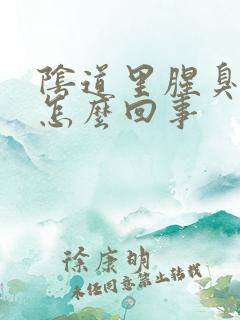 陰道里腥臭
怎麼回事
徐康明
未经同意禁止转载